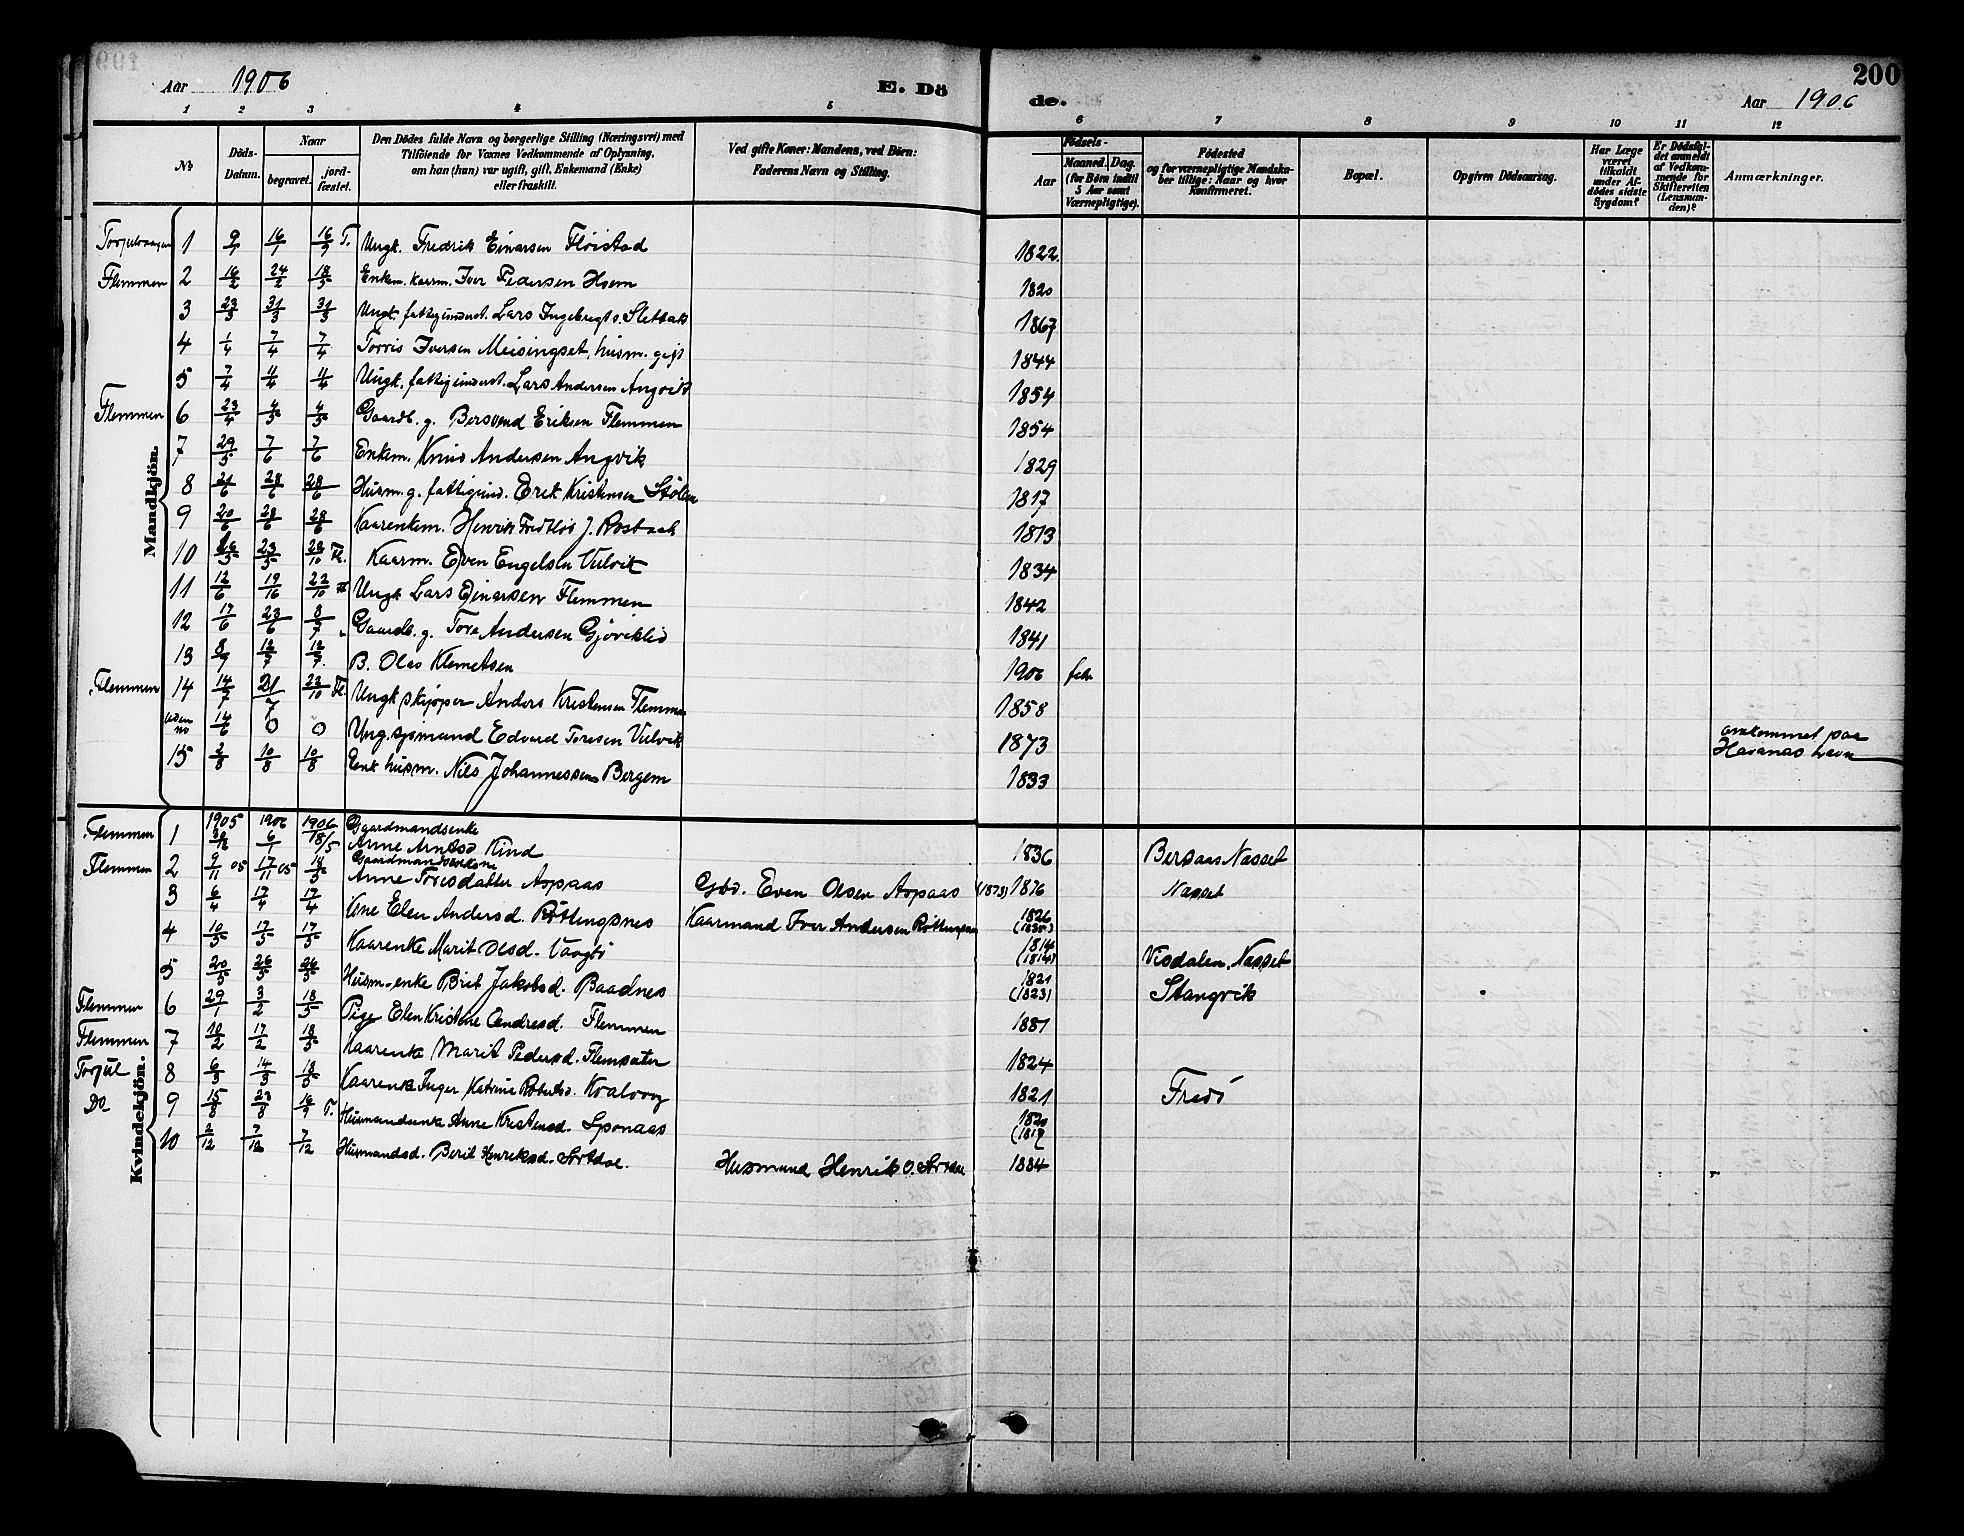 Aar 1906
E. Dö
de.
200
Aar 1906
1 2 3 4 5 6 7 8 9 10 11 12
No
Döds-Datum.
Naar
begravet.
jordfæstet.
Den Dödes fulde Navn og borgerlige Stilling (Næringsvei) med
Tilföiende for Voxnes Vedkommende af Oplysning,
om han (hun) var ugift, gift, Enkemand (Enke)
eller fraskilt.
Ved gifte Koner: Mandens, ved Börn:
Faderens Navn og Stilling.
Födsels-
Aar
Maaned. Dag.
(for Börn indtil
5 Aar samt
Værnepligtige).
Födested
og for værnepligtige Mandskaber tillige: Naar og hvor
Konfirmeret.
Bopæl.
Opgiven Dödsaarsag.
Har Læge
været
tilkaldt
under Afdödes sidste
Sygdom?
Er Dödsfaldet anmeldt
af Vedkommende for
Skifteretten
(Lensmanden)?
Anmærkninger.
Mandkjön.
1 9/1 16/1 16/9 T. Ungk. Fredrik Einarsen Flöistad 1822.
Flemmen 2 16/2 24/2 18/5 Enkem. kaarm. Iver Pedersen Hoem 1820
3 23/3 31/3 31/3 Ungk. fattigunderst. Lars Ingebregts. Sletbak 1867
4 1/4 7/4 7/4 Torris Iversen Meisingset, husm. gift 1844
5 7/4 11/4 11/4 Ungk. fattigunderst. Lars Andersen Angvik 1854
Flemmen 6 23/4 4/5 4/5 Gaardb. g. Bersvend Eriksen Flemmen 1854
7 29/5 7/6 7/6 Enkem. Knud Andersen Angvik 1829
8 21/6 28/6 28/6 Husm. g. fattigund. Erik Kristensen Stölen 1817
9 20/6 28/6 28/6 Kaarenkem. Henrik J. 1813
10 23/5 23/10 Fl. Kaarm. Even Engelsen Vulvik 1834
11 12/6 19/16 22/10 Fl Ungk Lars Einarsen Flemmen 1842
12 17/6 23/6 8/7 Gaardb. g. Tore Andersen Gjöviklid 1841
13 8/7 12/7 12/7. B. Olav Klemetsen 1906 feb
Flemmen 14 14/7 21/7 23/10 Fl. Ungk skipper Anders Kristensen Flemmen 1858
uden no 14/6 0 0 Ung. sjømand Edvard Toresen Vulvik 1873 omkommet paa
Havanas havn
15 2/8 10/8 10/8 Enk husm. Nils Johannessen Bergem 1833
Kvindekjön.
1905 1906 1906 Gaardmandsenke
Flemmen 1 6/1 18/5 Anne Arntsd Kind 1836 Bersaas Nesset
Gaardmandskone
Flemmen 2 9/11 05 17/11 05 18/5 Anne Toresdatter Aspaas Gbr. Even Olsen Aspaas (1873) 1876 Nesset
3 6/4 17/4 17/4 Kone Elen Andersd. Röttingsnes Kaarmand Iver Andersen Röttingsnes 1826
(1825)
4 10/5 17/5 17/5 Kaarenke Marit Olsd. Vaagbö 1814
(1814) Visdalen, Nesset
5 20/5 26/5 26/5 Husm-enke Brit Jakobsd. Baadnes 1821
(1823) Stangvik
Flemmen 6 29/1 3/2 18/5 Pige Elen Kristine Andresd. Flemmen 1881
Flemmen 7 10/2 17/2 18/5 Kaarenke Marit Pedersd. Flemsæter 1824
Torjul 8 6/3 14/3 18/5 Kaarenke Inger Katrine Robertsd. Kvalvaag 1821 Fredö
Do 9 15/8 23/8 16/9 T. Husmandsenke Anne Kristensd. Sponaas 1820
(1817
10 2/12 7/12 7/12 Husmandsd. Berit Henriksd. Sortdal. Husmand Henrik O. Sortdal 1884